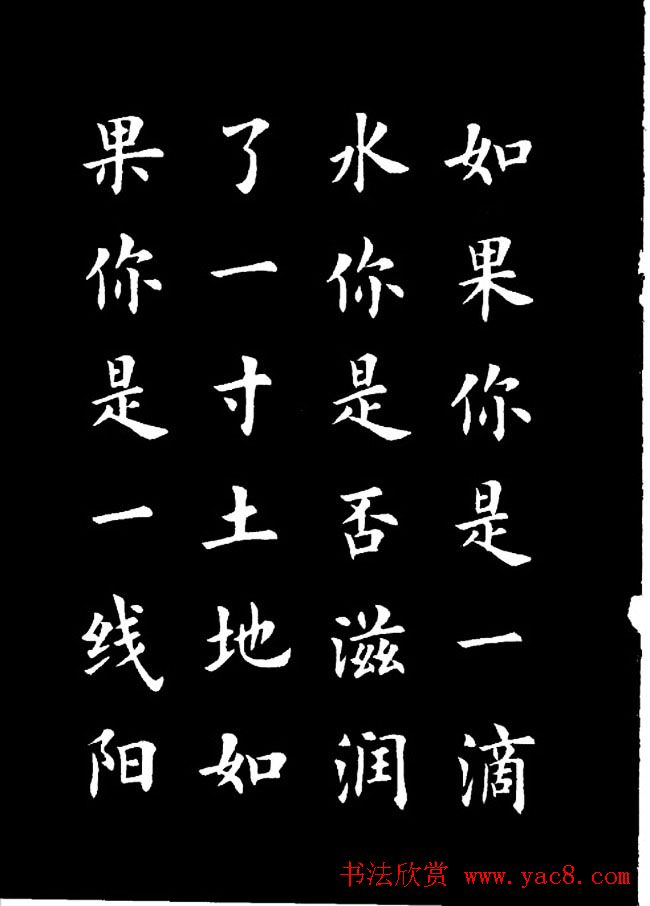 如果你是一滴
水你是否滋润
了一寸土地如
果你是一线阳
书法欣赏 www.yac8.com